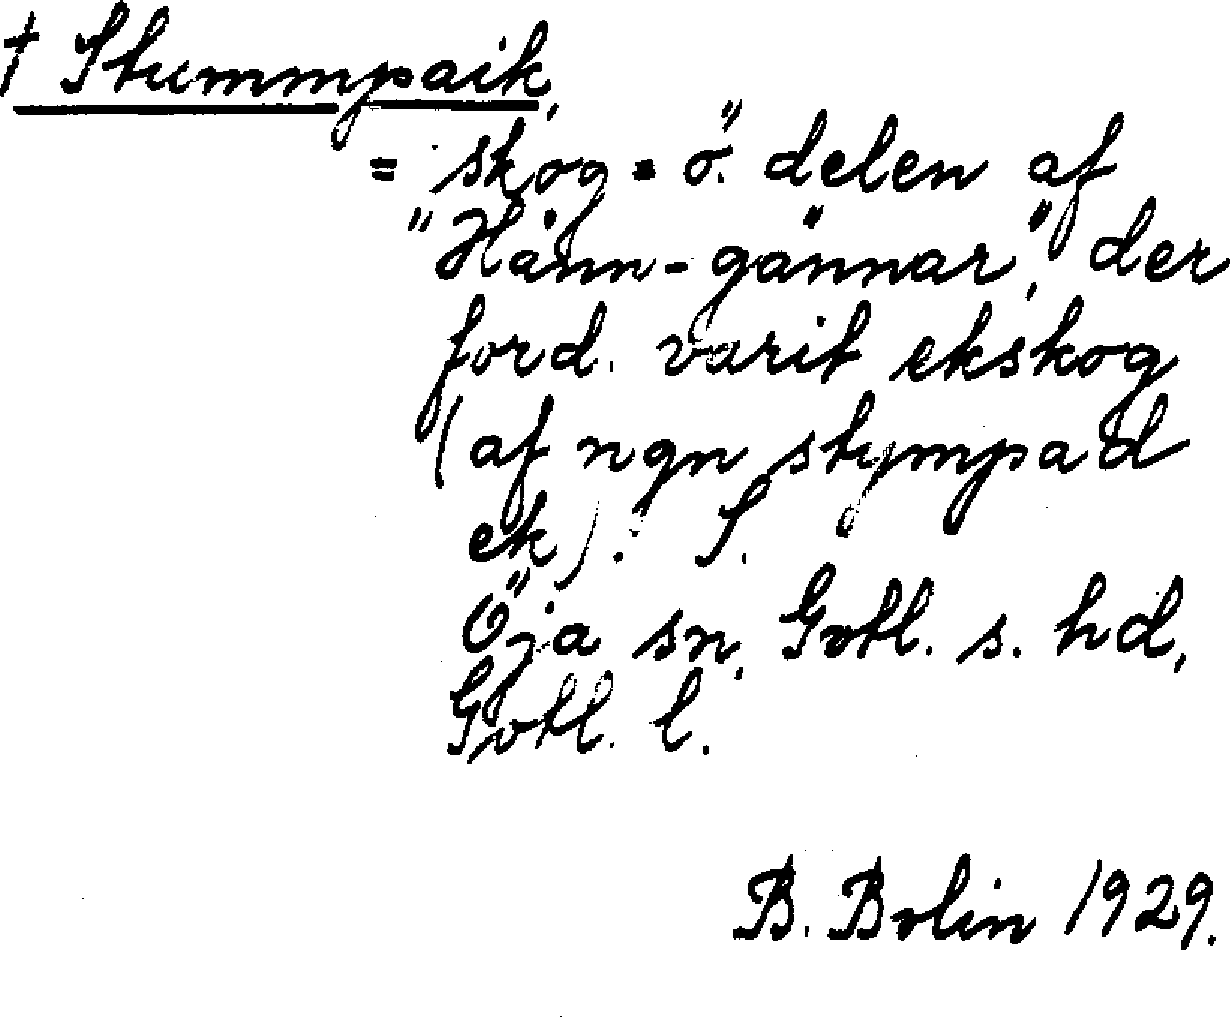 † Stummpaik,
= skog = ö. delen af
"Hänn-gännar", der
ford. varit ekskog
(af ngn stympad
ek). S.
Öja sn, Gotl. s. hd,
Gotl. l.
B. Bolin 1929.